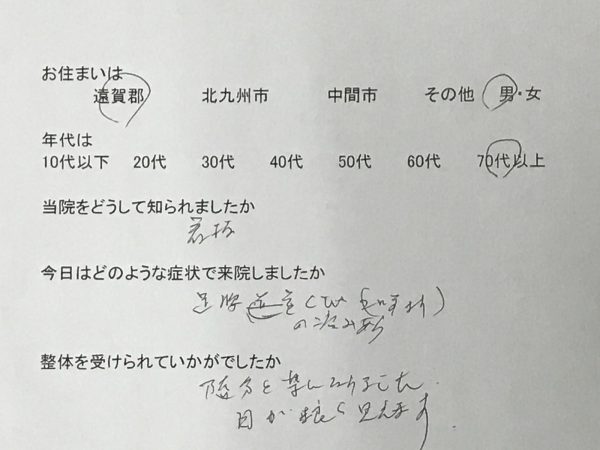 お住まいは
遠賀郡 北九州市 中間市 その他 男・女
年代は
10代以下 20代 30代 40代 50代 60代 70代以上
当院をどうして知られましたか
看板
今日はどのような症状で来院しましたか
足腰
の痛み
整体を受けられていかがでしたか
随分と楽になりました.
目が良く見えます.